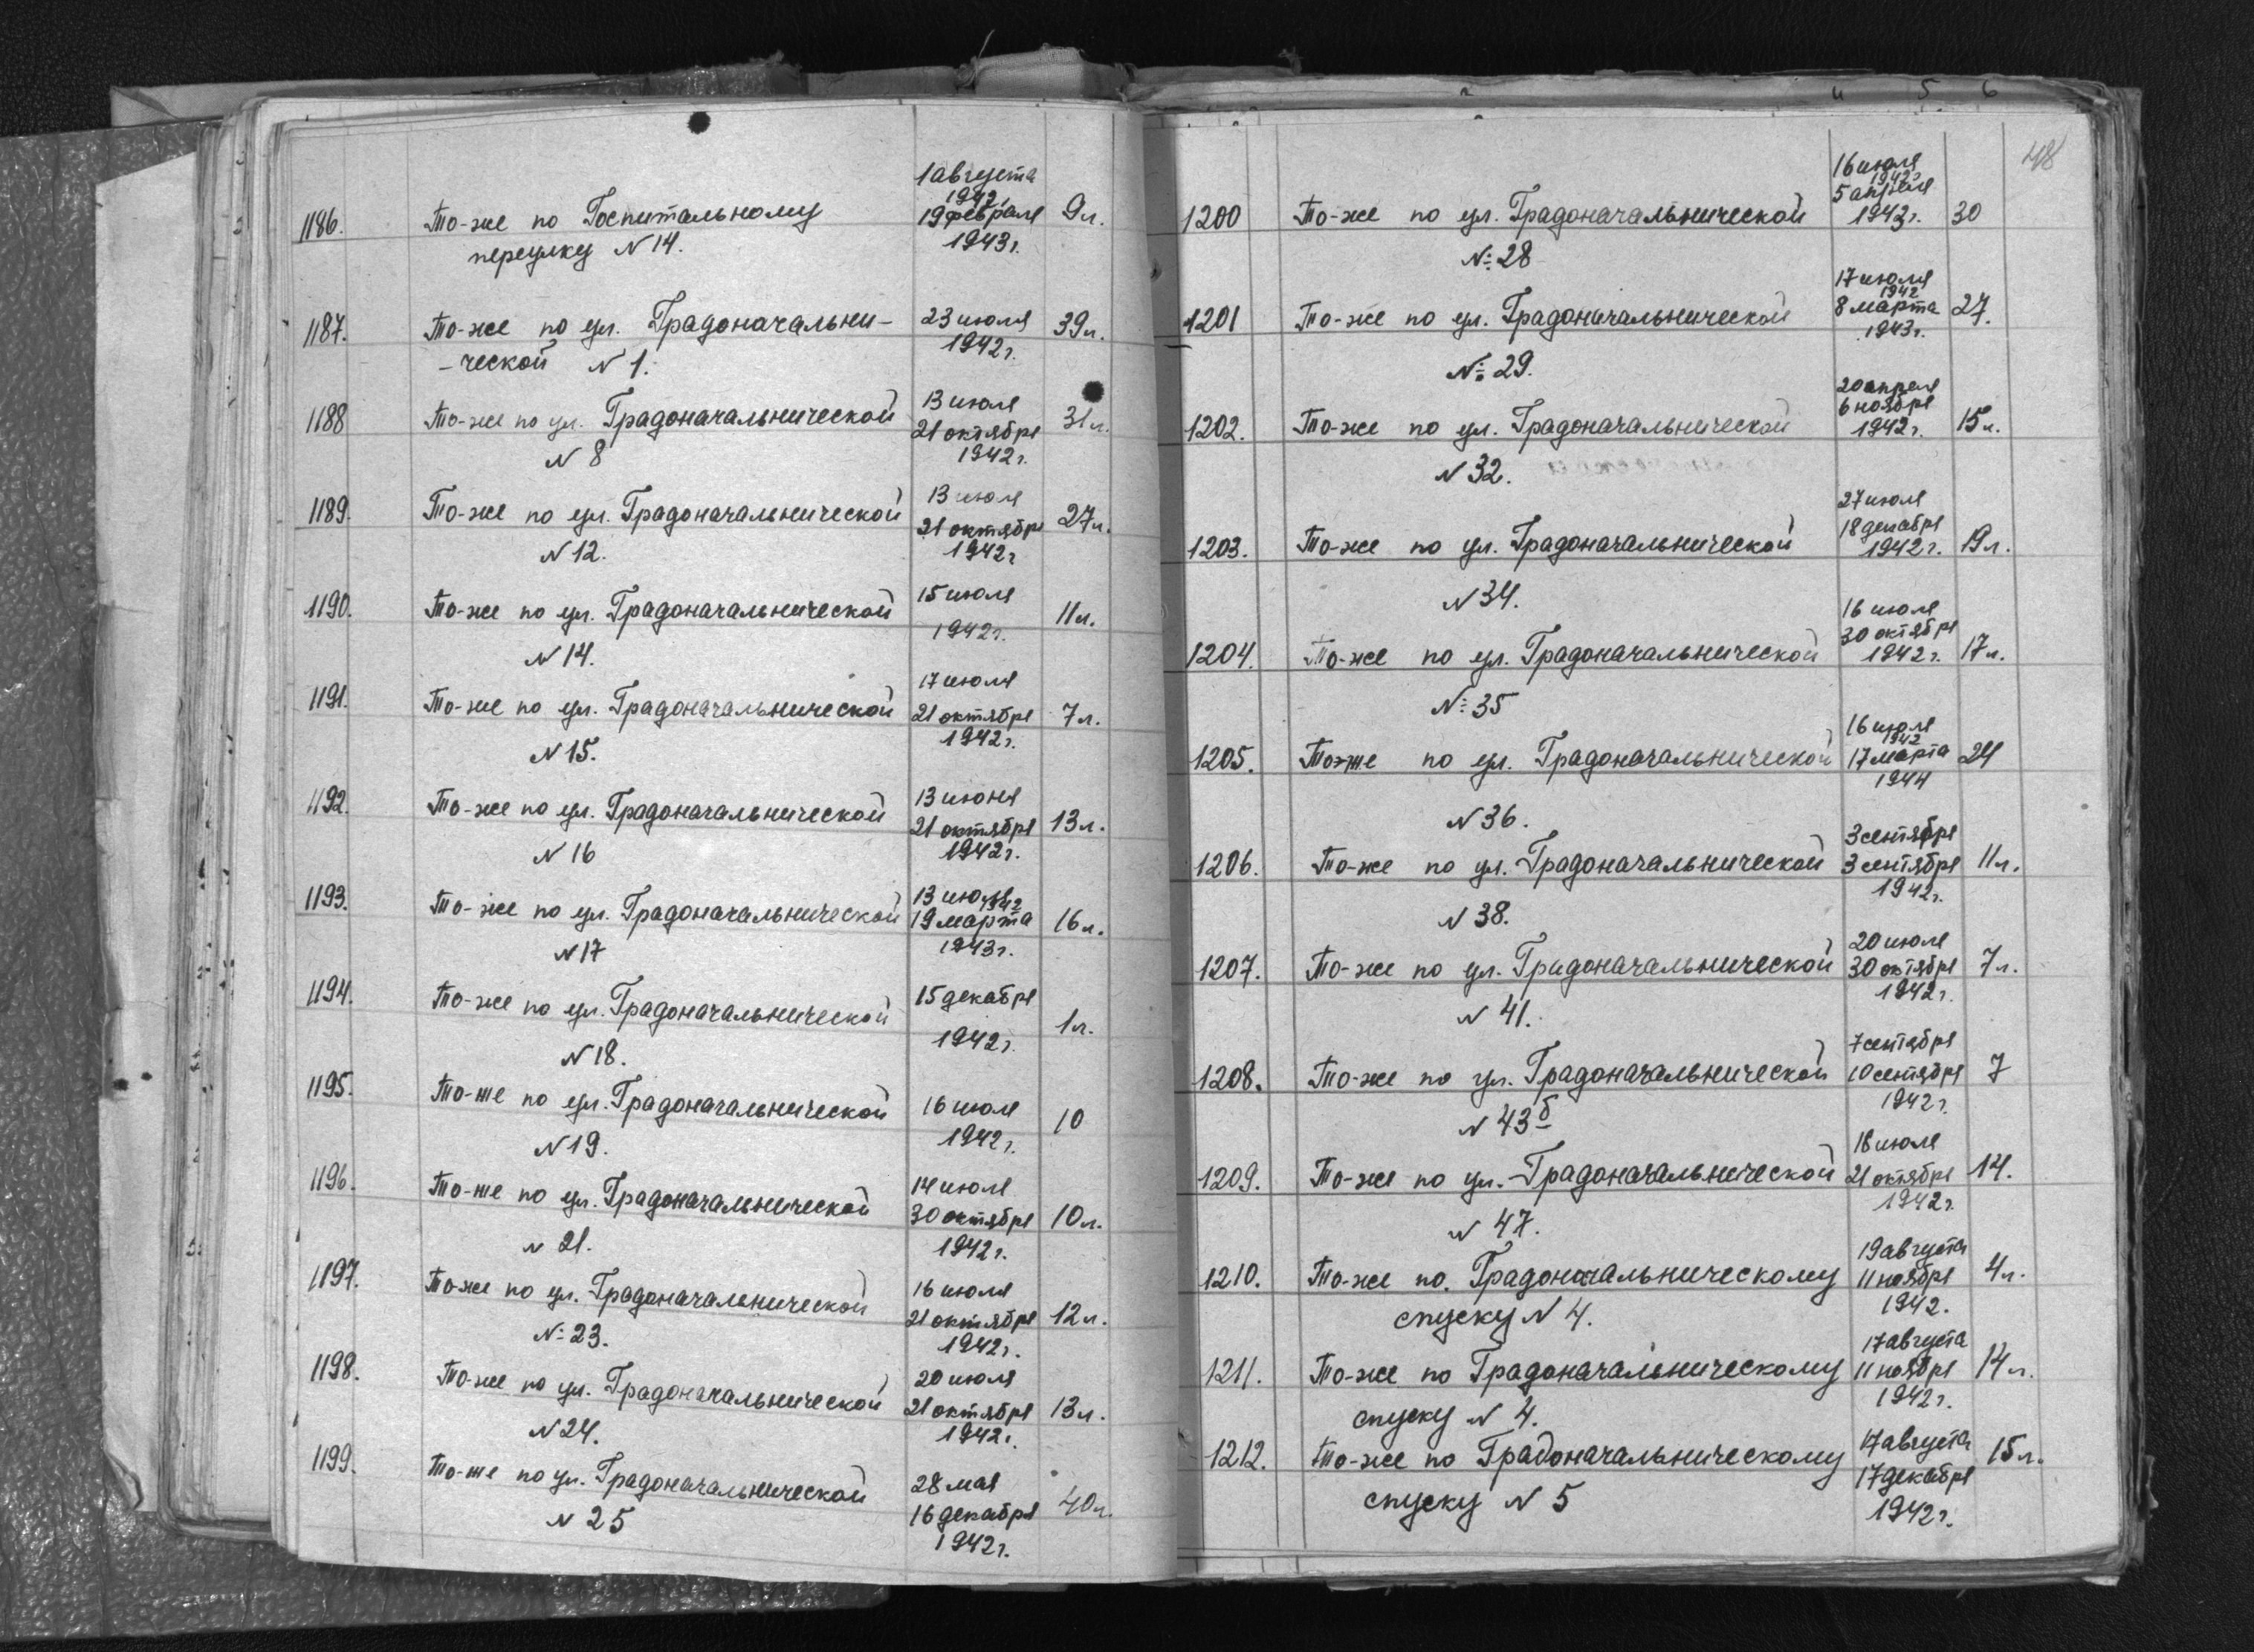 1 августа
1942
1186. То-же по Госпитальному 19 февраля 9 л.
переулку N 14. 1943 г.
1187. То-же по ул. Градоначальни- 23 июля 39 л.
-ческой N 1. 1942 г.
1188 То-же по ул. Градоначальнической 13 июля 31 л.
21 октября
N 8 1942 г.
1189. То-же по ул. Градоначальнической 13 июля 27 л.
21 октября
N 12. 1942 г
1190. То-же по ул. Градоначальнической 15 июля 11 л.
1942 г.
N 14.
1191. То-же по ул. Градоначальнической 17 июля 7 л.
21 октября
N 15. 1942 г.
1192. То-же по ул. Градоначальнической 13 июня 13 л.
21 октября
N 16 1942 г.
1193. То-же по ул. Градоначальнической 13 1942
19 марта 16 л.
N 17 1943 г.
1194. То-же по ул. Градоначальнической 15 декабря 1 л.
1942 г.
N 18.
1195. То-же по ул. Градоначальнической 16 июля 10
N 19. 1942 г.
1196. То-же по ул. Градоначальнической 14 июля
30 октября 10 л.
N 21. 1942 г.
1197. То-же по ул. Градоначальнической 16 июля
21 октября 12 л.
N: 23. 1942 г.
1198. То-же по ул. Градоначальнической 20 июля
21 октября 13 л.
N 24. 1942 г.
1199. То-же по ул. Градоначальнической 28 мая
16 декабря 40 л.
N 25 1942 г.
4 5 6
48
16 июля
1942 г
5 апреля
1200 То-же по ул. Градоначальнической 1943 г. 30
N: 28
17 июля
1942
1201 То-же по ул. Градоначальнической 8 марта 27.
1943 г.
N: 29.
20 апреля
6 ноября
1202. То-же по ул. Градоначальнической 1942 г. 15 л.
N 32.
27 июля
18 декабря
1203. То-же по ул. Градоначальнической 1942 г. 19 л.
N 34.
16 июля
30 октября
1204. То-же по ул. Градоначальнической 1942 г. 17 л.
N: 35
16 июля
1942
1205. То-же по ул. Градоначальнической 17 марта 24
1944
N 36.
3 сентября
1206. То-же по ул. Градоначальнической 3 сентября 11 л.
1942 г.
N 38.
20 июля
1207. То-же по ул. Градоначальнической 30 октября 7 л.
1942 г.
N 41.
7 сентября
1208. То-же по ул. Градоначальнической 10 сентября 7
1942 г.
N 43 б
18 июля
1209. То-же по ул. Градоначальнической 21 октября 14.
1942 г.
N 47.
19 августа
1210. То-же по. Градоначальническому 11 ноября 4 л.
спуску N 4. 1942.
17 августа
1211. То-же по Градоначальническому 11 ноября 14 л.
1942 г.
спуску N 4.
1212. То-же по Градоначальническому 17 августа 15 л.
17 декабря
спуску N 5 1942 г.